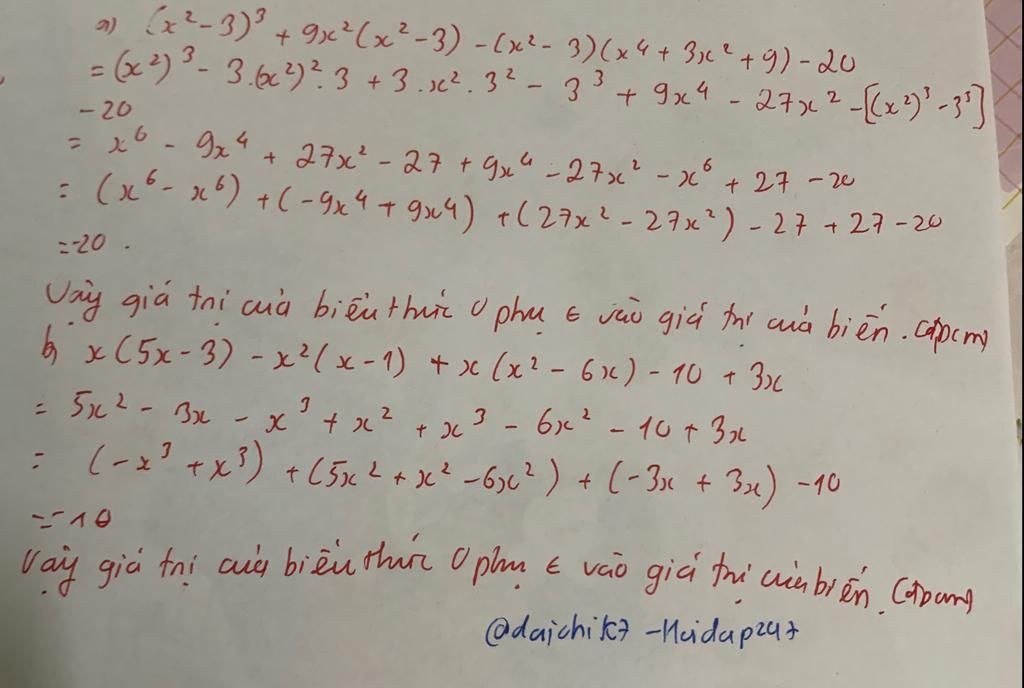 a) (x² - 3)³ + 9x² (x² - 3) - (x² - 3)(x⁴ + 3x² + 9) - 20
= (x²)³ - 3.(x²)².3 + 3.x².3² - 3³ + 9x⁴ - 27x² - [(x²)³ - 3³]
- 20
= x⁶ - 9x⁴ + 27x² - 27 + 9x⁴ - 27x² - x⁶ + 27 - 20
= (x⁶ - x⁶) + (-9x⁴ + 9x⁴) + (27x² - 27x²) - 27 + 27 - 20
= -20.
Vậy giá trị của biểu thức 0 phụ ∈ vào giá trị của biến. (đpcm)
b) x(5x - 3) - x²(x - 1) + x(x² - 6x) - 10 + 3x
= 5x² - 3x - x³ + x² + x³ - 6x² - 10 + 3x
= (-x³ + x³) + (5x² + x² - 6x²) + (-3x + 3x) - 10
= -10
Vậy giá trị của biểu thức 0 phụ ∈ vào giá trị của biến. (đpcm)
@daichik7 - Hoidap247